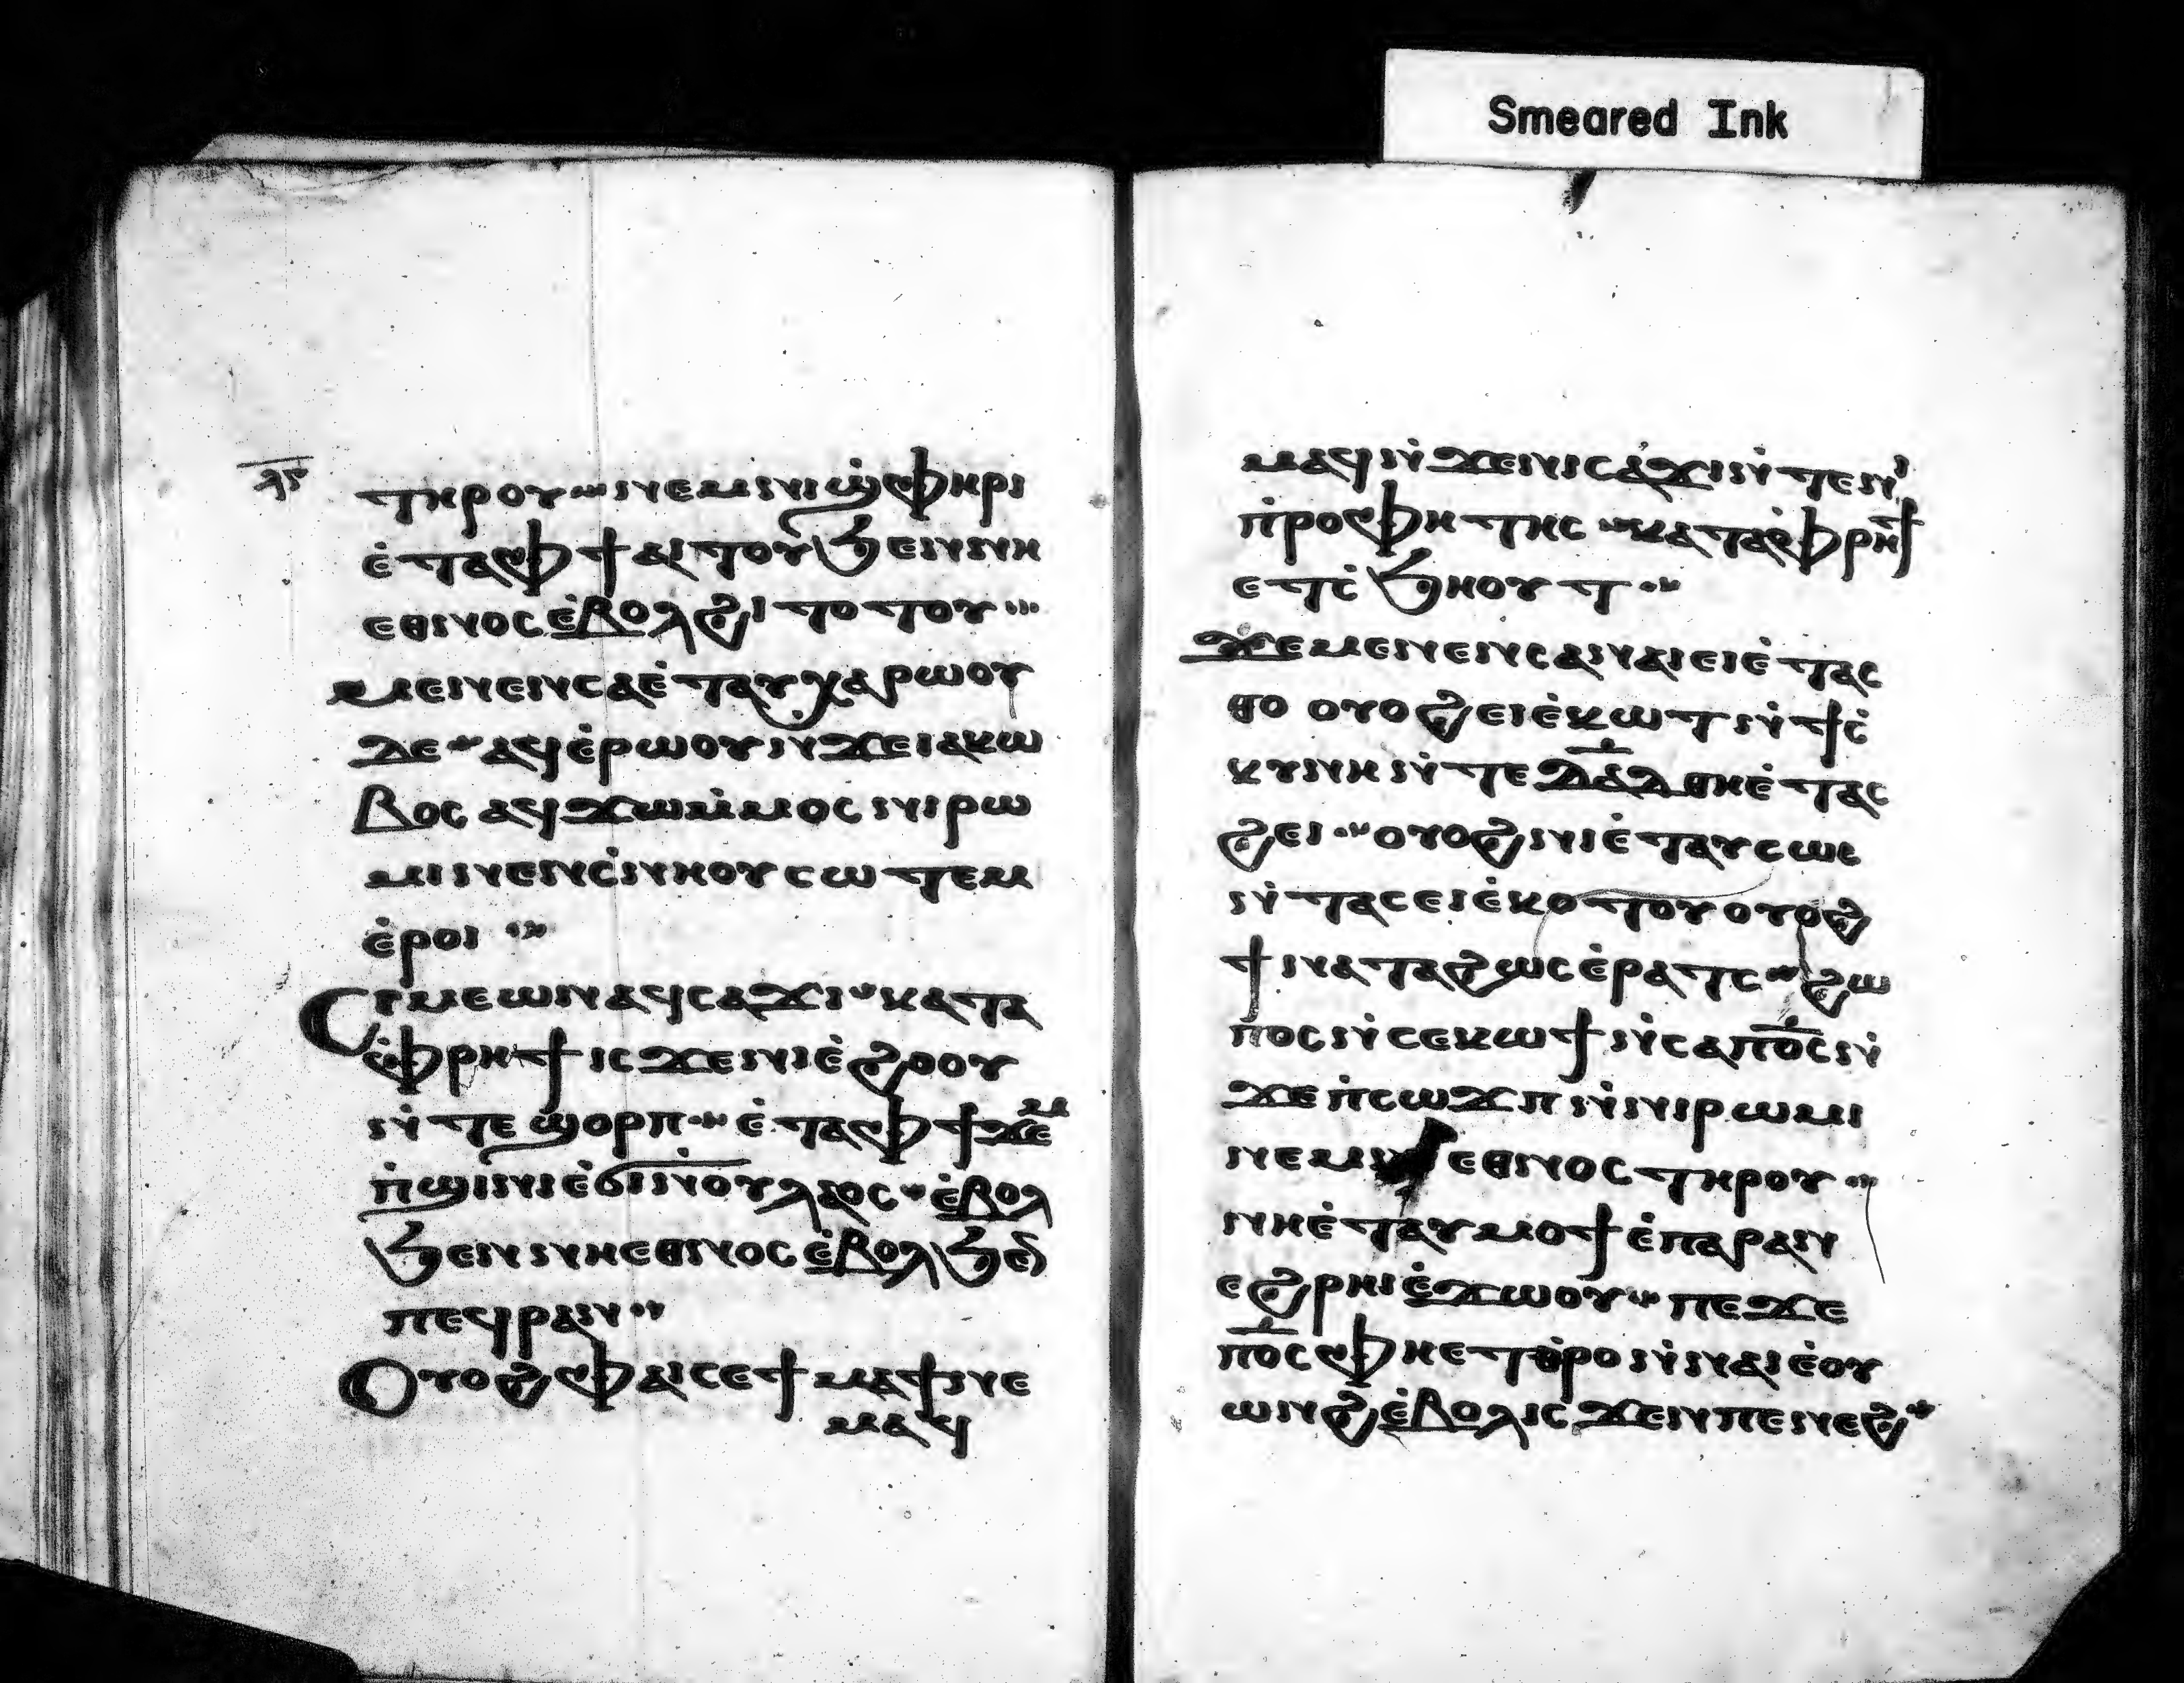 Smeared Ink
ⲗⲋ
ⲧⲏⲣⲟⲩ ⲛⲉⲙ ⲛⲓϣ̀ⲫⲏⲣⲓ
ⲉ̀ⲧⲁⲫϯ ⲁⲓⲧⲟⲩ ϧⲉⲛ ⲛⲏ
ⲉⲑⲛⲟⲥ ⲉ̀ⲃⲟⲗϩⲓⲧⲟⲧⲟⲩ
ⲙⲉⲛⲉⲛⲥⲁ ⲉ̀ⲧⲁⲩⲭⲁⲣⲱⲟⲩ
ⲇⲉ ⲁϥⲉ̀ⲣⲱⲟⲩ ⲛϫⲉ ⲓⲁⲕⲱ
ⲃⲟⲥ ⲁϥϫⲱ ⲙ̀ⲙⲟⲥ ⲛⲓⲣⲱ
ⲙⲓ ⲛⲉⲛⲥ̀ⲛⲏⲟⲩ ⲥⲱⲧⲉⲙ
ⲉ̀ⲣⲟⲓ
Ⲥⲓⲙⲉⲱⲛ ⲁϥⲥⲁϫⲓ ⲕⲁⲧⲁ
ⲫ̀ⲣⲏϯ ⲓⲥϫⲉⲛ ⲛⲓⲉ̀ϩⲟⲟⲩ
ⲛ̀ⲧⲉ ϣⲟⲣⲡ ⲉ̀ⲧⲁⲫϯ ϫⲉⲙ
ⲡ̀ϣⲓⲛⲓ ⲉ̀ϭⲓ ⲛ̀ⲟⲩⲗⲁⲟⲥ ⲉ̀ⲃⲟⲗ
ϧⲉⲛ ⲛⲏⲉⲑⲛⲟⲥ ⲉ̀ⲃⲟⲗ ϧⲉⲛ
ⲡⲉϥⲣⲁⲛ
Ⲟⲩⲟϩ ⲫⲁⲓ ⲥⲉϯⲙⲁϯ ⲛⲉ
ⲙⲁϥ
ⲙⲁϥ ⲛ̀ϫⲉ ⲛⲓⲥⲁϫⲓ ⲛ̀ⲧⲉ ⲛⲓ
ⲡ̀ⲣⲟⲫⲏⲧⲏⲥ ⲕⲁⲧⲁ ⲫ̀ⲣⲏϯ
ⲉⲧⲥ̀ϧⲏⲟⲩⲧ
ϫⲉ ⲙⲉⲛⲉⲛⲥⲁ ⲛⲁⲓ ⲉⲓⲉ̀ⲧⲁⲥ
ⲑⲟ ⲟⲩⲟϩ ⲉⲓⲉ̀ⲕⲱⲧ ⲛ̀ϯⲥ̀
ⲕⲩⲛⲏ ⲛ̀ⲧⲉ ⲇⲁⲇ ⲑⲏⲉ̀ⲧⲁⲥ
ϩⲉⲓ ⲟⲩⲟϩ ⲛⲓⲉ̀ⲧⲁⲩⲥⲱⲥ
ⲛ̀ⲧⲁⲥ ⲉⲓⲉ̀ⲕⲟⲧⲟⲩ ⲟⲩⲟϩ
ϯⲛⲁⲧⲁϩⲱⲥ ⲉ̀ⲣⲁⲧⲥ ϩⲱ
ⲡⲟⲥ ⲛ̀ⲥⲉⲕⲱϯ ⲛ̀ⲥⲁ ⲡⲟ̅ⲥ ⲛ̀
ϫⲉ ⲡ̀ⲥⲱϫⲡ ⲛ̀ⲛⲓⲣⲱⲙⲓ
ⲛⲉⲙ ⲛⲓⲉⲑⲛⲟⲥ ⲧⲏⲣⲟⲩ
ⲛⲏⲉ̀ⲧⲁⲩⲙⲟϯ ⲉ̀ⲡⲁⲣⲁⲛ
ⲉϩⲣⲏⲓ ⲉ̀ϫⲱⲟⲩ ⲡⲉϫⲉ
ⲡⲟ̅ⲥ ⲫⲏⲉⲧⲟ̀ⲣⲟ ⲛ̀ⲛⲁⲓ ⲉ̀ⲟⲩ
ⲱⲛϩ ⲉ̀ⲃⲟⲗ ⲓⲥϫⲉⲛ ⲡⲉⲛⲉϩ